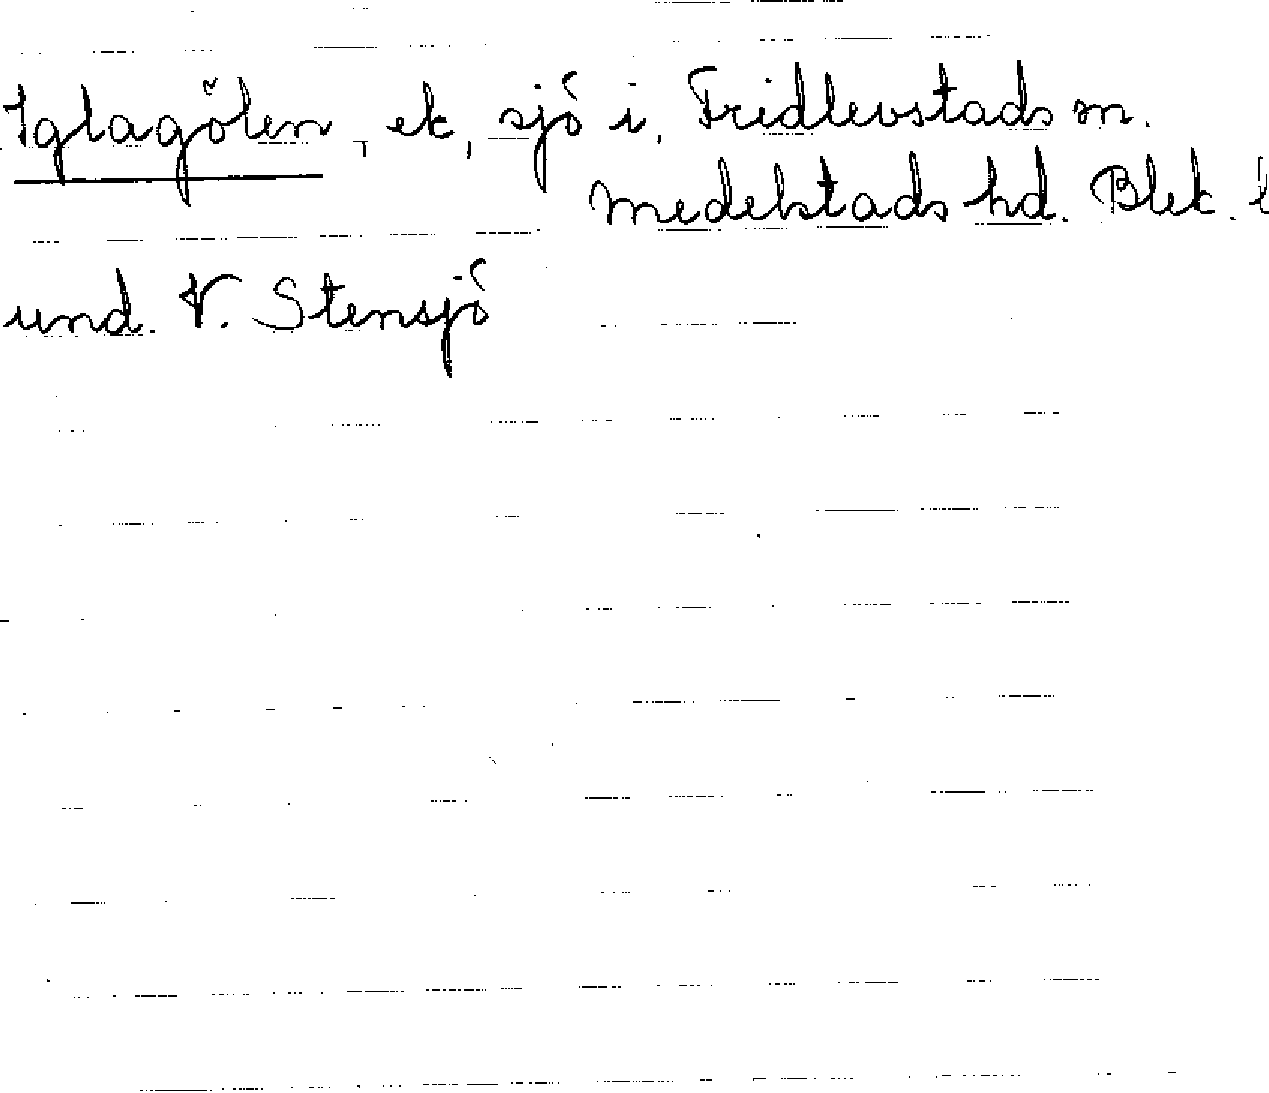 Iglagölen, ek, sjö i, Fridlevstads sn.
Medelstads hd. Blek. l
und. V. Stensjö